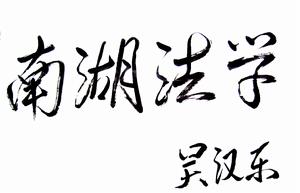 南湖法学
吴汉东